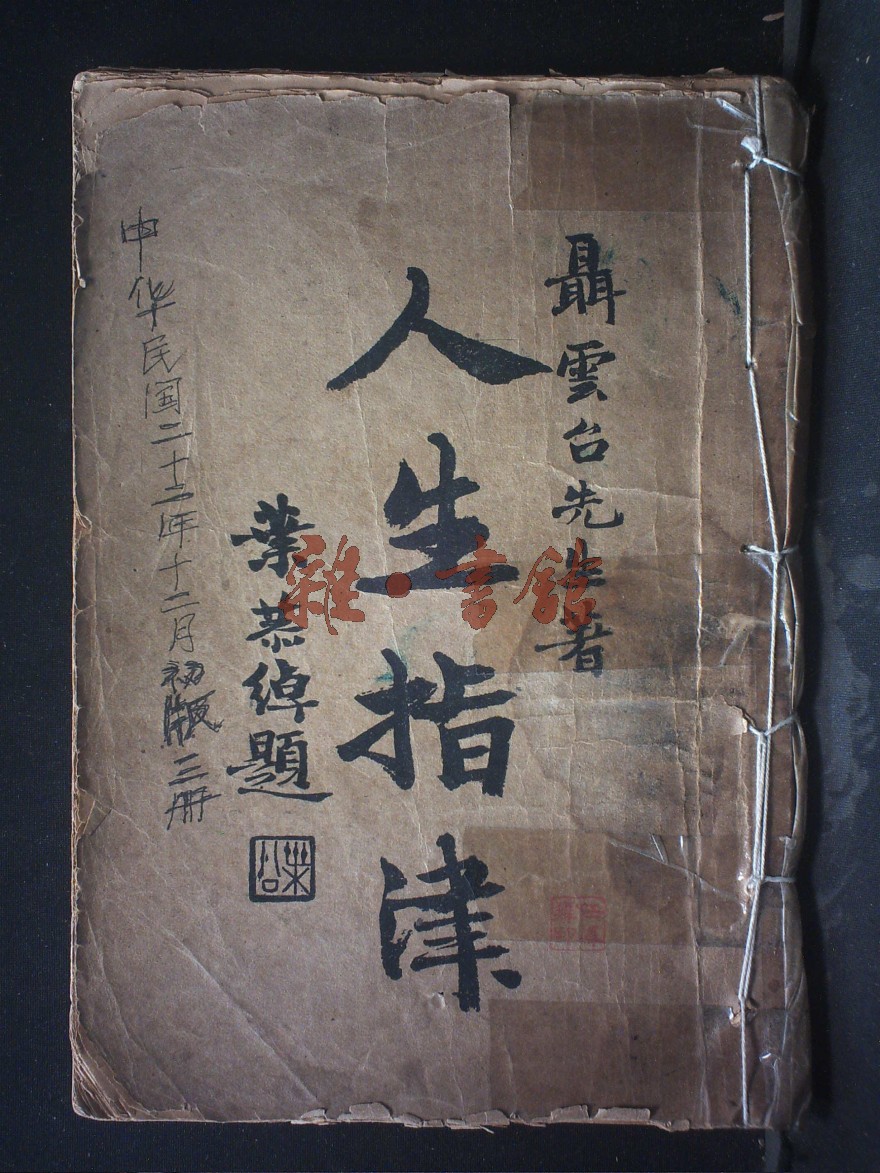 聶雲台先生著
人生指津
葉恭綽題
中华民国二十二年十二月初版三册
雜·書館